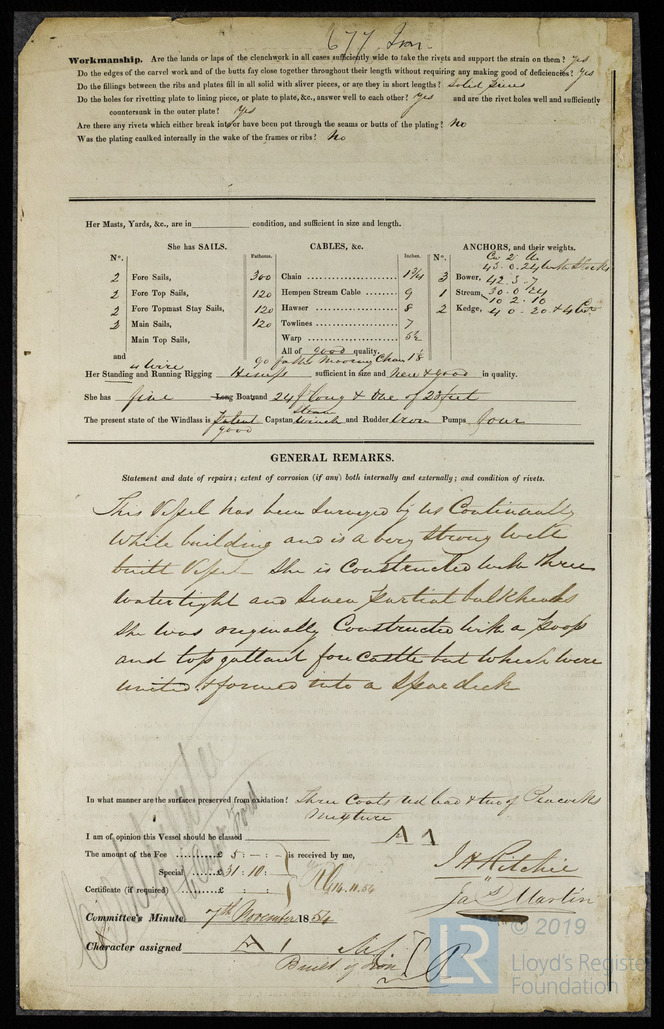 677 Iron
Workmanship. Are the lands or laps of the clenchwork in all cases sufficiently wide to take the rivets and support the strain on them? Yes
Do the edges of the carvel work and of the butts fay close together throughout their length without requiring any making good of deficiencies? Yes
Do the fillings between the ribs and plates fill in all solid with sliver pieces, or are they in short lengths? Solid pieces
Do the holes for rivetting plate to lining piece, or plate to plate, &c., answer well to each other? Yes and are the rivet holes well and sufficiently
countersunk in the outer plate? Yes
Are there any rivets which either break into or have been put through the seams or butts of the plating? No
Was the plating caulked internally in the wake of the frames or ribs? No
Her Masts, Yards, &c., are in condition, and sufficient in size and length.
She has SAILS. CABLES, &c. ANCHORS, and their weights.
N°. Fathoms. Inches. N°.
2 Fore Sails, 300 Chain 1 3/4 3 Bower, 42.3.7
2 Fore Top Sails, 120 Hempen Stream Cable 9 1 Stream, 30.0.24
2 Fore Topmast Stay Sails, 120 Hawser 8 2 Kedge, 10.2.10
3 Main Sails, 120 Towlines 7
Main Top Sails, Warp 5½
and All of good quality.
Her Standing and Running Rigging Hemp sufficient in size and New & good in quality.
She has five Long Boat and 24 ft long & One of 23 feet
The present state of the Windlass is Patent good Capstan Steam Winch and Rudder Iron Pumps four
GENERAL REMARKS.
Statement and date of repairs; extent of corrosion (if any) both internally and externally; and condition of rivets.
This Vessel has been Surveyed by us Continually
While building and is a very Strong well
built Vessel She is Constructed with three
watertight and Seven partial bulkheads
She was originally Constructed with a poop
and top gallant fore castle but which were
united & formed into a Spar deck
In what manner are the surfaces preserved from oxidation? Three Coats red lead & two of Peacocks
Mixture
I am of opinion this Vessel should be classed A 1
The amount of the Fee £ 5 : - : - is received by me,
Special £ 31 : 10 : -
Certificate (if required) £ : : 14.11.54
J H Ritchie
Jas Martin
Committee's Minute 7th November 1854
Character assigned A 1
Built of Iron
© 2019
LR Lloyd's Register
Foundation